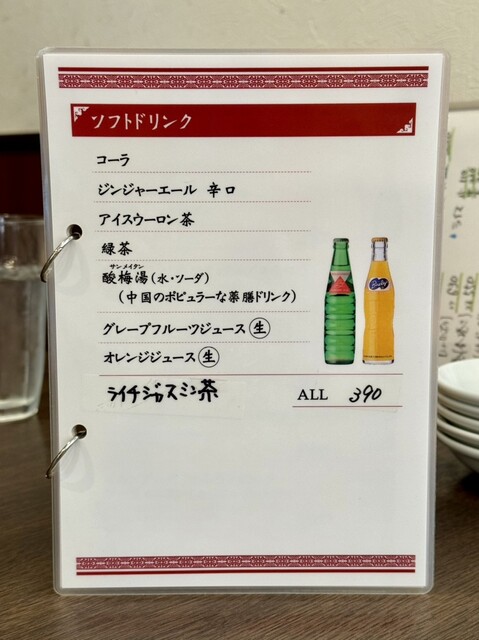 ソフトドリンク
コーラ
ジンジャーエール 辛口
アイスウーロン茶
緑茶
サンメイタン
酸梅湯(水・ソーダ)
(中国のポピュラーな薬膳ドリンク)
グレープフルーツジュース 生
オレンジジュース 生
ライチジャスミン茶
ALL 390